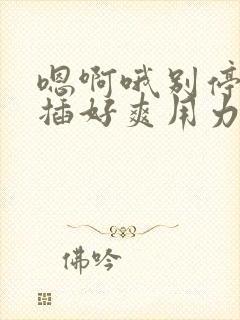 嗯啊哦别停
插好爽用力
佛吟